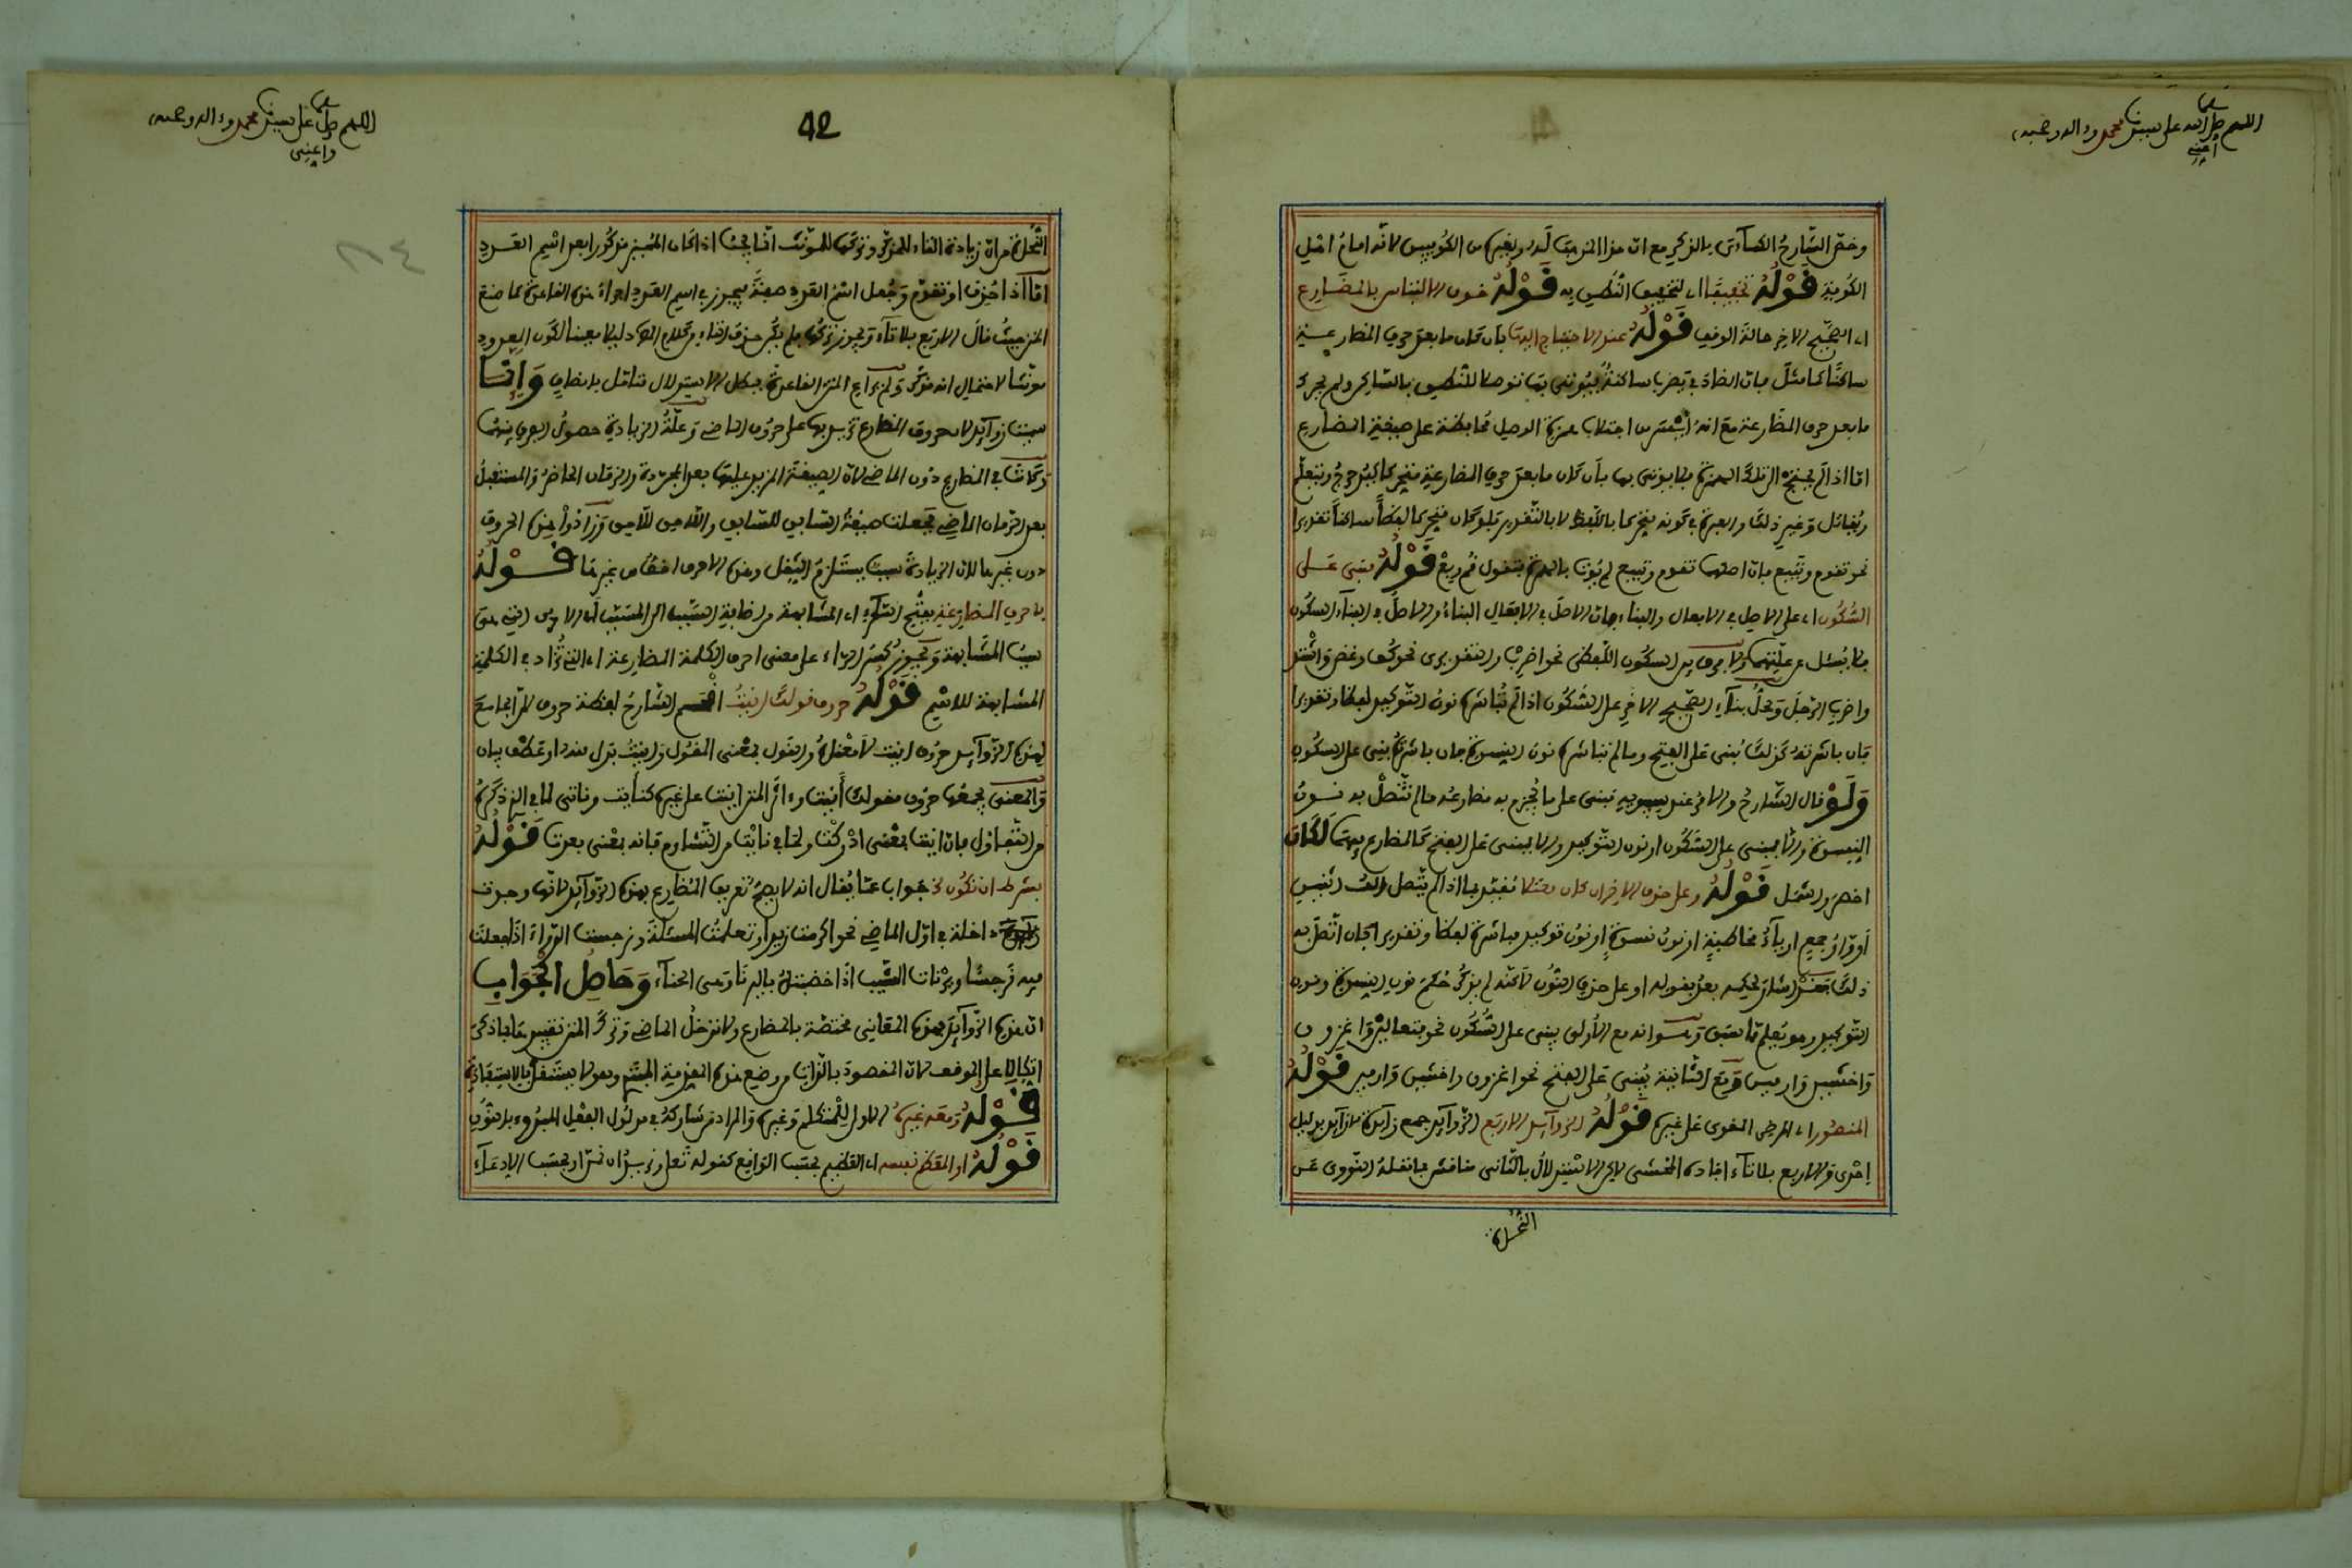 اللهم صل الله على سيدنا محمد وءاله وصحبه
أعني
وخص الشارح الكسآءي بالذكر مع ان هذا المذهب له ولغيره من الكوفيين لانه امام اهل
الكوفة قوله تخفيفا اي لتخفيف النطق به قوله خوف الالتباس بالمضارع
اي الصحيح الاخر حالة الوقف قوله عند الاحتياج اليها بان كان ما بعد حرف المضارعة
ساكنا كما مثل فان الضاد في تضرب ساكنة فيوتى بها توصلا للنطق بالساكن ولم يحرك
ما بعد حرف المضارعة مع انه ايسر من اجتلاب همزة الوصل محافظة على صيغة المضارع
اما اذا لم يحتج الى تلك الهمزة فلا يوتى بها بأن كان ما بعد حرف المضارعة متحركا كيدحرج ويتعلم
ويقاتل وغير ذلك والعبرة في كونه متحركا باللفظ لا بالتقدير فلو كان متحركا لفظا ساكنا تقديرا
نحو تقوم وتبيع فان اصلهما تقوم وتبيع لم يؤت بالهمزة فتقول قم وبع قوله فيبنى على
السكون اي على الاصل في الافعال والبناء فان الاصل في الافعال البناء والاصل في البنآء السكون
فلا يسئل عن علتهما ولا فرق بين السكون اللفظي نحو اضرب والتقديري نحو كف وغض واشتد
واضرب الرجل ومحل بنآء الصحيح الاخر على السكون اذا لم تباشره نون التوكيد لفظا وتقديرا
فان باشرته كذلك بني على الفتح وما لم تباشره نون النسوة فان باشرته بني على السكون
ولو قال الشارح والامر عند سيبويه مبني على ما يجزم به مضارعه ما لم تتصل به نون
النسوة والا فيبنى على السكون او نون التوكيد والا فيبنى على الفتح كالمضارع فيهما لكان
اخصر واشمل قوله وعلى حذف الاخر ان كان معتلا مقيد بما اذا لم يتصل بالف اثنين
أو واو جمع او يآء مخاطبة او نون نسوة او نون توكيد مباشرة لفظا وتقديرا فان اتصل به
ذلك فقد اشار لحكمه بعد بقوله او على حذف النون لاكنه لم يذكر حكم نون النسوة ونون
التوكيد وهو يعلم مما سبق وسواء انه مع الأولى يبنى على السكون نحو يتعالين واغزون
واخشين وارمين ومع الثانية يبنى على الفتح نحو اغزون واخشين وارمين قوله
المنصور اي المرضي القوي على غيره قوله الزوآئد الاربع الزوآئد جمع زآئدة لا زآئد بدليل
احدى والاربع بلا تآء افاده المحشي لاكن الاستدلال بالثاني مناقش فيما نقله النووي عن
النحاة
اللهم صل على سيدنا محمد وءاله وصحبه
واعني
42
٨٤
النحاة من ان زيادة التاء للمذكر وتركها للمؤنث انما يجب اذا كان المميز مذكورا بعد اسم العدد
اما اذا حذف او تقدم وجعل اسم العدد صفة فيجوز في اسم العدد اجراء هذه القاعدة كما صنع
المتن حيث قال الاربع بلا تآء ويجوز تركها فلم يكن حذف التاء في كلام المص دليلا معينا لكون المعدود
مونثا لاحتمال انه مذكر ولم يراع المتن القاعدة فبطل الاستدلال فتامل بانصاف وانما
سميت زوآئد لان حروف المضارع تزيد بها على حروف الماضي وعلة الزيادة حصول الفرق بينهما
وكانت في المضارع دون الماضي لان الصيغة المزيد عليها بعد المجردة والزمان الحاضر والمستقبل
بعد الزمان الماضي فجعلت صيغة السابق للسابق واللاحق للاحق وزادوا هذه الحروف
دون غيرها لان الزيادة سبب يستلزم الثقل وهذه الاحرف اخف من غيرها قوله
باحرف المضارعة بفتح الرآء اي المشابهة من اضافة السبب الى المسبب له الاحرف التي هي
سبب المشابهة ويجوز كسر الراء على معنى احرف الكلمة المضارعة اي التي تزاد في الكلمة
المشابهة للاسم قوله حروف قولك انيت اقحم الشارح لفظة حروف اي الجامع
لهذه الزوآئد حروف انيت لا معناه والقول بمعنى المقول وانيت بدل منه او عطف بيان
والمعنى يجمعها حروف مقولك أنيت وءاثر المتن انيت على غيره كنأيت وناتي لما في الذكر
من التفاؤل فان انيت بمعنى ادركت ولما في نايت من التشاوم فانه بمعنى بعدت قوله
بشرط ان تكون الخ جواب عما يقال انه لا يصح تعريف المضارع بهذه الزوآئد لانها وجدت
داخلة في اول الماضي نحو اكرمت زيدا وتعلمت المسئلة ونرجست الدوآء اذا جعلت
فيه نرجسا ويرنات الشيب اذا خضبته باليرنا وهي الحنآء وحاصل الجواب
ان هذه الزوآئد بهذه المعاني مختصة بالمضارع ولا تدخل الماضي وترك المتن تقييدها بما ذكر
اتكالا على الموقف لان المقصود بالذات من وضع هذه المقدمة المبتدي وهو لا يستقل بالاستفادة
قوله ومعه غيره الاولى للمتكلم وغيره والمراد من شاركه في مدلول الفعل المبدوء بالنون
قوله او المعظم نفسه اي العظيم بحسب الواقع كقوله تعلى نريد ان نمن او بحسب الادعآء